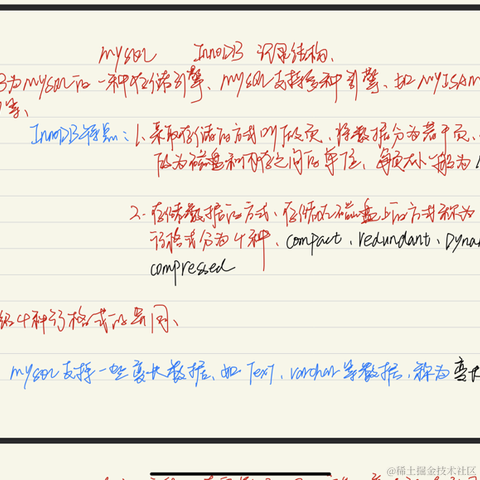 mysql InnoDB 记录结构、
为mysql的一种存储引擎、mysql支持多种引擎、如MYISAM
等、
InnoDB特点：1. 采取存储的方式叫做页、将数据分为若干页、
做为磁盘和内存之间的单位、每页大小一般为
2. 存储数据的方式、存储在磁盘上的方式称为
行格式分为4种、compact、redundant、Dyna
compressed
4种行格式的异同、
mysql支持一些变长数据、如Text、varchar等数据、称为变长
@稀土掘金技术社区